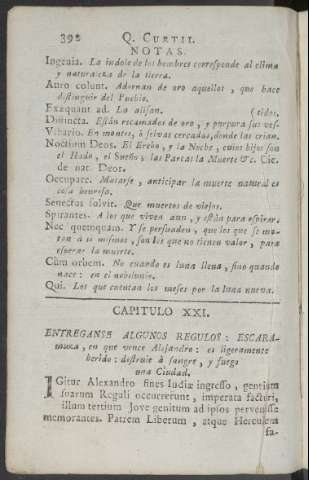 392 Q. CURTII.
NOTAS.
Ingenia. La indole de los hombres corresponde al clima
y naturaleza de la tierra.
Auro colunt. Adornan de oro aquellos, que hace
distinguir del Pueblo.
Exæquant ad. La alisan. (tidos.
Distincta. Están recamados de oro, y purpura sus ves-
Vibario. En montes, ò selvas cercadas, donde las crian.
Noctium Deos. El Erebo, y la Noche, cuios hijos son
el Hado, el Sueño, las Parcas la Muerte &c. Cic.
de nat. Deor.
Occupare. Matarse, anticipar la muerte natural es
cosa honrosa.
Senectus solvit. Que muertos de viejos.
Spirantes. A los que viven aun, y están para espirar.
Nec quemquam. Y se persuaden, que los que se ma-
tan à sí mismos, son los que no tienen valor, para
esperar la muerte.
Cùm orbem. No cuando es luna llena, sino quando
nace: en el novilunio.
Qui. Los que cuentan los meses por la luna nueva.
CAPITULO XXI.
ENTREGANSE ALGUNOS REGULOS: ESCARA-
muza, en que vence Alejandro: es ligeramente
herido: destruie à sangre, y fuego
una Ciudad.
IGitur Alexandro fines Indiæ ingresso, gentium
suarum Reguli occurrerunt, imperata facturi,
illum tertium Jove genitum ad ipsos pervenisse
memorantes. Patrem Liberum, atque Herculem
fa-